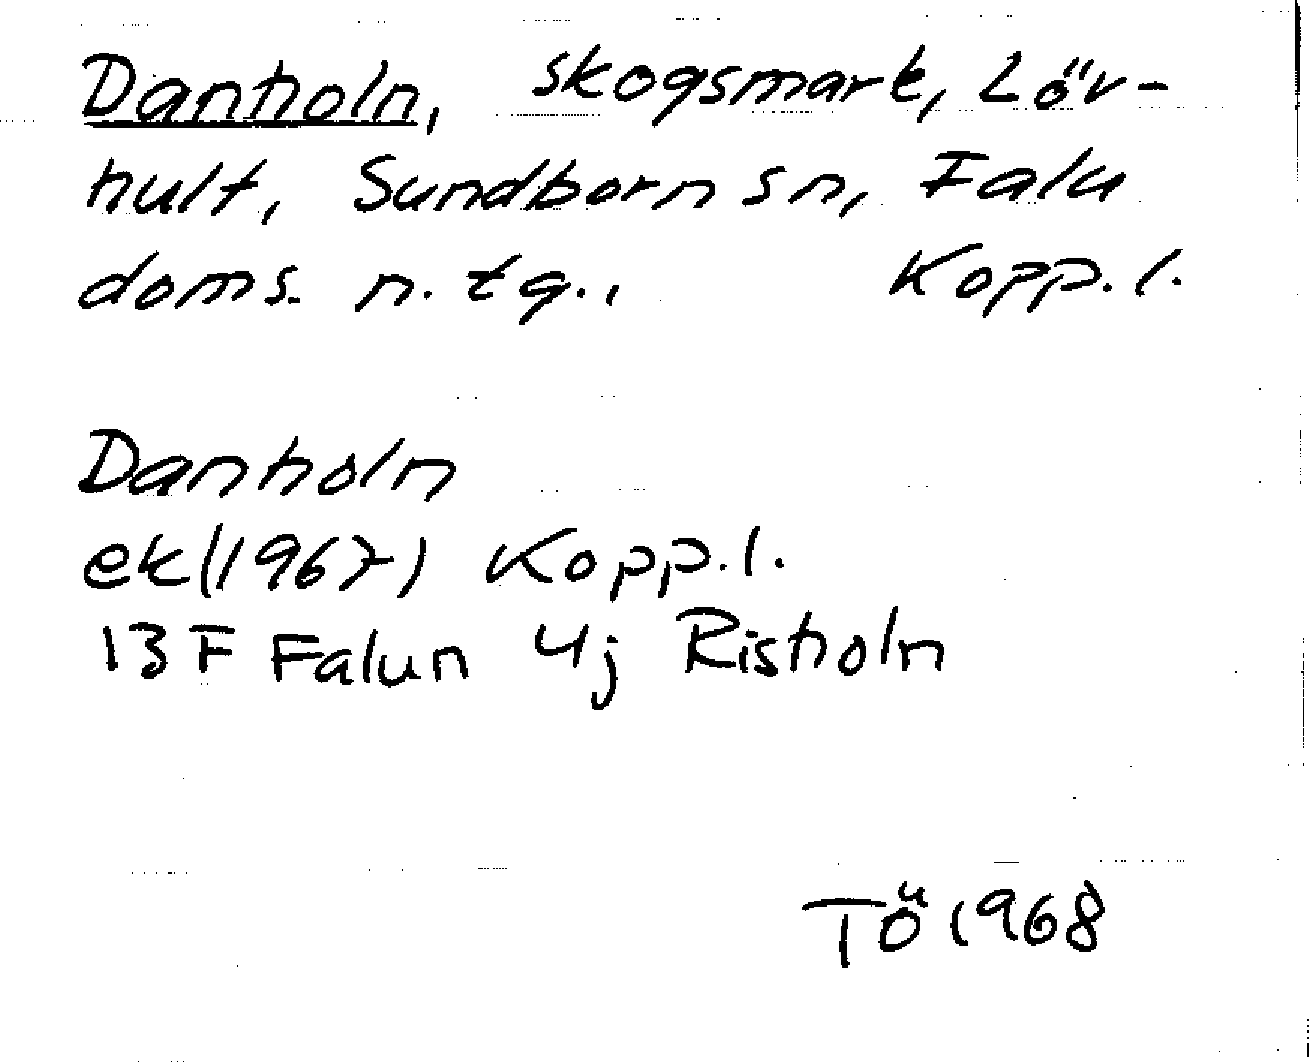 Danholn, skogsmark, Löv-
hult, Sundborn sn, Falu
doms. n. tg., Kopp. l.
Danholn
ek (1967) Kopp. l.
13 F Falun 4j Risholn
TÖ 1968